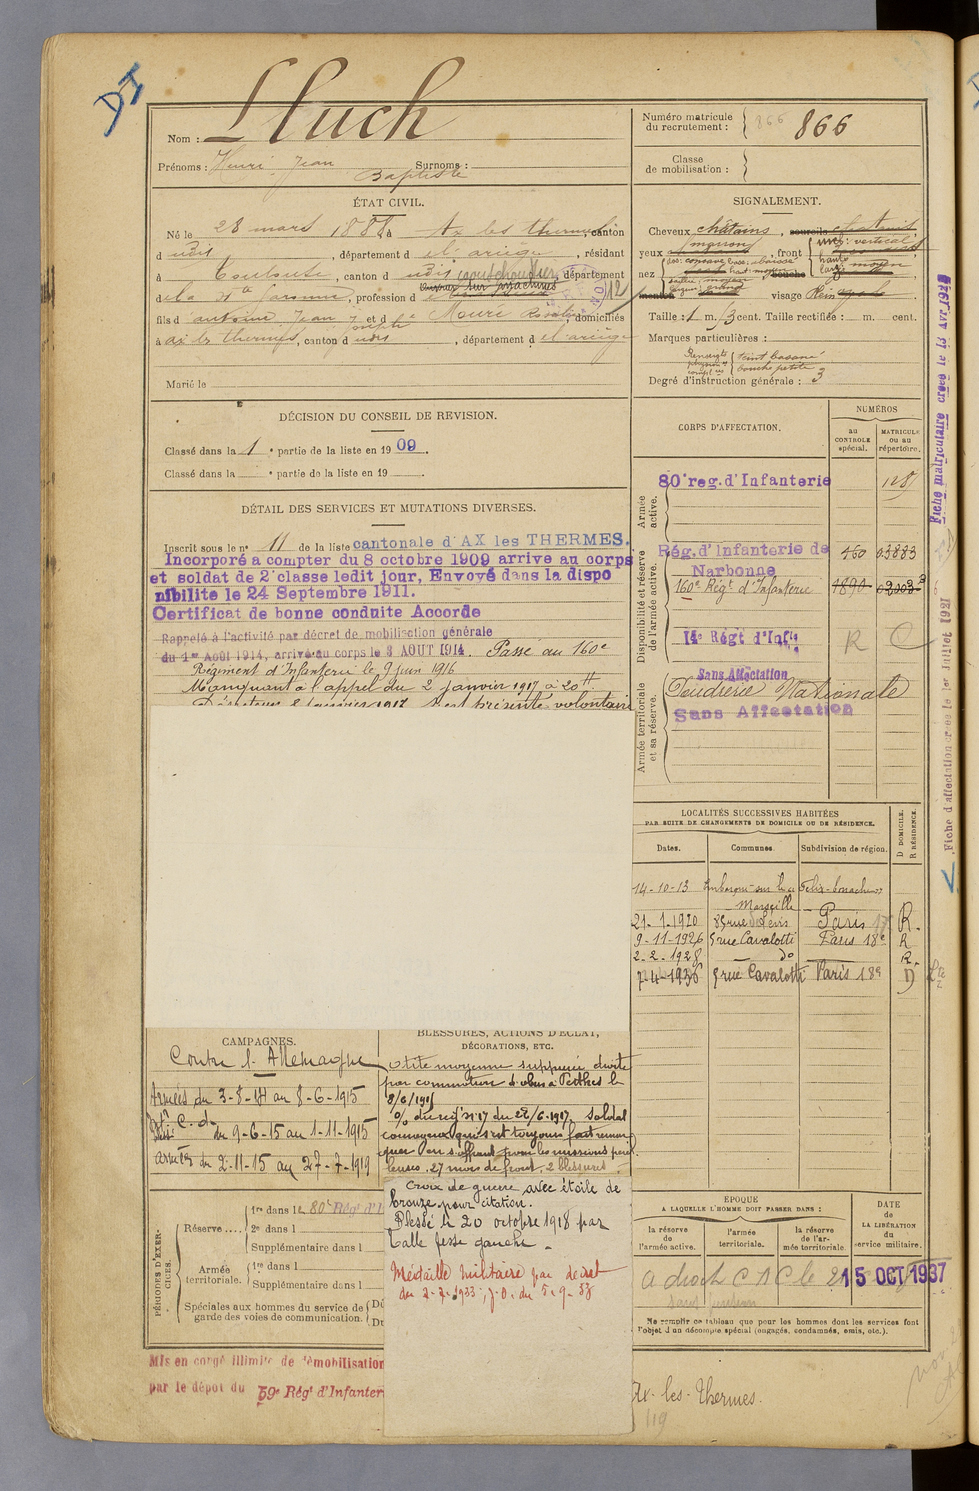 DI
Nom : Lluch
Prénoms : Henri Jean Surnoms :
Baptiste
Numéro matricule
du recrutement : 866 866
Classe
de mobilisation :
ÉTAT CIVIL.
Né le 28 mars 1888 à Ax les thermes, canton
d udis, département d el ariège, résidant
à Toulouse, canton d udis caoutchoutier, département
d la Hte Garonne, profession d
fils d antoine Jean joseph et d Moure, domiciliés
à ax les thermes, canton d udis, département d el ariège
Marié le
SIGNALEMENT.
Cheveux châtains, sourcils châtains
yeux marron, front vertical
nez
visage Plein
Taille : 1 m. cent. Taille rectifiée : m. cent.
Marques particulières :
teint basané
bouche petite
Degré d'instruction générale : 3
DÉCISION DU CONSEIL DE REVISION.
Classé dans la 1e partie de la liste en 1909.
Classé dans la e partie de la liste en 19
DÉTAIL DES SERVICES ET MUTATIONS DIVERSES.
Inscrit sous le n° 11 de la liste cantonale d'AX les THERMES.
Incorporé a compter du 8 octobre 1909 arrive au corps
et soldat de 2e classe ledit jour, Envoyé dans la dispo
nibilite le 24 Septembre 1911.
Certificat de bonne conduite Accordé
Rappelé à l'activité par décret de mobilisation générale
du 1er Août 1914, arrivé au corps le 3 AOUT 1914. Passé au 160e
Régiment d'Infanterie le 9 juin 1916
Manquant à l'appel du 2 janvier 1917 à 20H.
Déserteur janvier 1917 s'est présenté volontair
CORPS D'AFFECTATION.
NUMÉROS
au
CONTROLE
spécial.
MATRICULE
ou au
répertoire.
Armée
active.
80e reg. d'Infanterie
Disponibilité et réserve
de l'armée active.
Rég. d'Infanterie de 460 03883
Narbonne
160e Régt d'Infanterie 1890
14e Régt d'Infie R C
Armée territoriale
et sa réserve.
Sans Affectation
Poudrerie Nationale
Sans Affectation
Fiche matriculaire créée le 13 Avr 192
Fiche d'affectation créée le 1er Juillet 1921
LOCALITÉS SUCCESSIVES HABITÉES
PAR SUITE DE CHANGEMENTS DE DOMICILE OU DE RÉSIDENCE.
Dates. Communes. Subdivision de région. D DOMICILE. R RÉSIDENCE.
14-10-13
Marseille
21-1-1920 Paris 17 R.
9-11-1926 5 rue Cavalotti Paris 18e R
2-2-1928 do R.
7-4-1936 5 rue Cavalotti Paris 18e D
CAMPAGNES.
Contre l'Allemagne
Armées du 3-8-14 au 8-6-1915
C. d. du 9-6-15 au 1-11-1915
Armées du 2-11-15 au 27-7-1919
BLESSURES, ACTIONS D'ÉCLAT,
DÉCORATIONS, ETC.
Otite moyenne suppurée droite
par commotion d'obus à Perthes le
8/6/1915
O/ du rég. n° 17 du 28/6-1917. Soldat
courageux qui s'est toujours fait remar
quer en s'offrant pour les missions péril
leuses. 27 mois de front, 2 blessures.
Croix de guerre avec étoile de
bronze pour citation.
Blessé le 20 octobre 1918 par
balle fesse gauche.
Médaille militaire par décret
du 2-7-1933, J.O. du 5-9-33
PÉRIODES D'EXER-
CICES.
Réserve ....
1re dans le 80e Régt d'I
2e dans l
Supplémentaire dans l
Armée
territoriale.
1re dans l
Supplémentaire dans l
Spéciales aux hommes du service de
garde des voies de communication.
Du
Du
ÉPOQUE
A LAQUELLE L'HOMME DOIT PASSER DANS :
la réserve
de
l'armée active.
l'armée
territoriale.
la réserve
de l'ar-
mée territoriale.
DATE
de
LA LIBÉRATION
du
service militaire.
a droit C A C le 15 OCT 1937
Ne remplir ce tableau que pour les hommes dont les services font
l'objet d'un décompte spécial (engagés, condamnés, omis, etc.).
Mis en congé illimité de démobilisation
par le dépot du 59e Régt d'Infanter
Ax-les-Thermes.
119